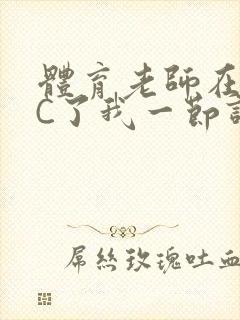 體育老師在
C了我一節
屌絲玫瑰吐血